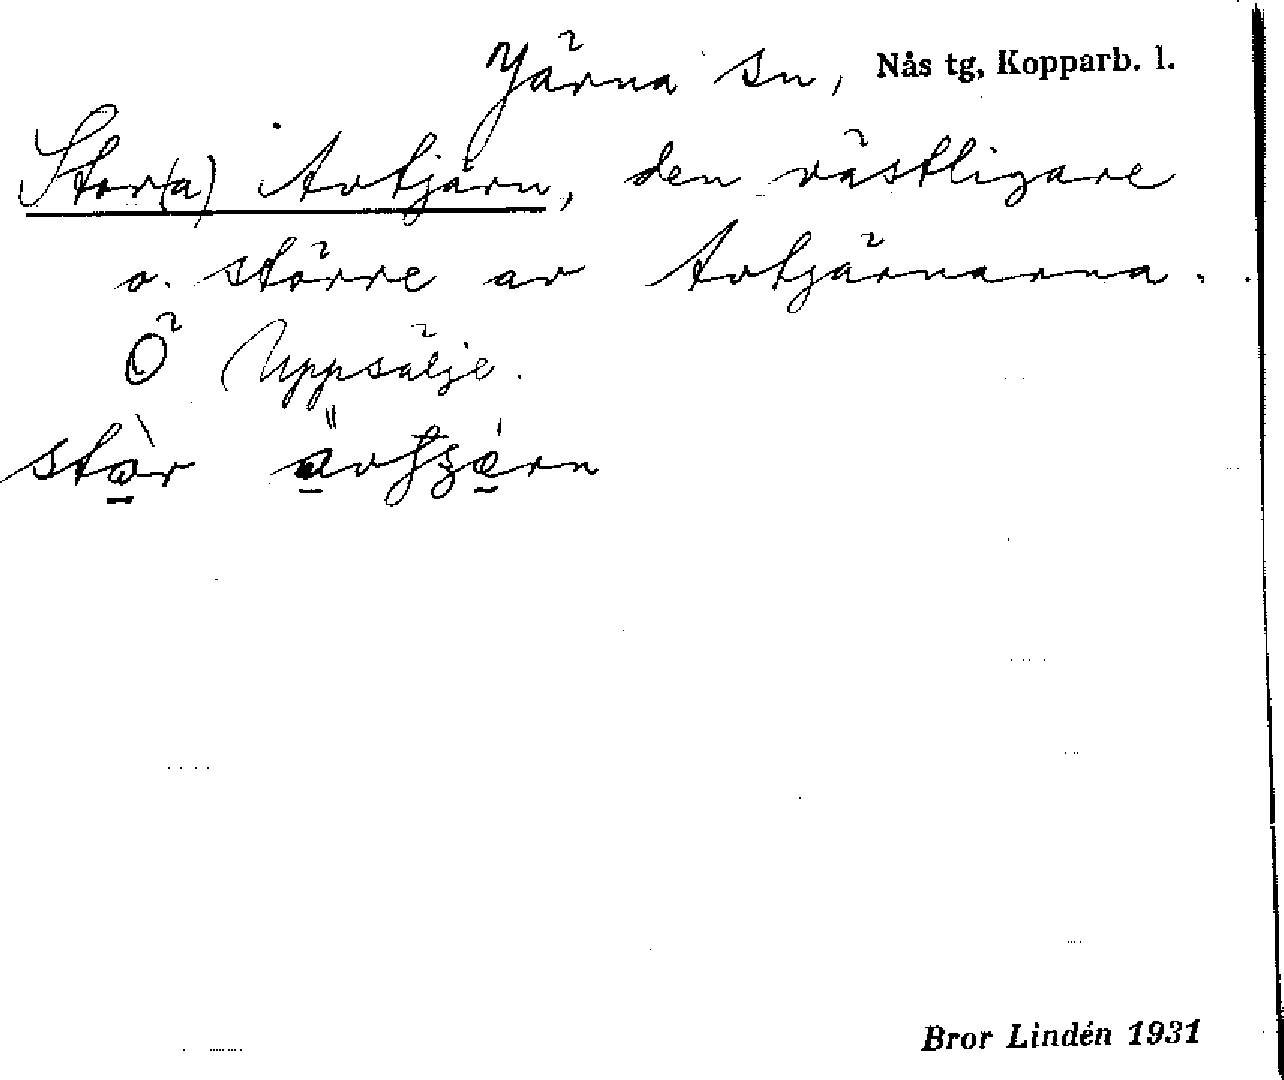 Järna sn, Nås tg, Kopparb. l.
Stor(a) Avtjärn, den västligare
o. större av Avtjärnarna.
Ö Uppsälje.
stòr
Bror Lindén 1931